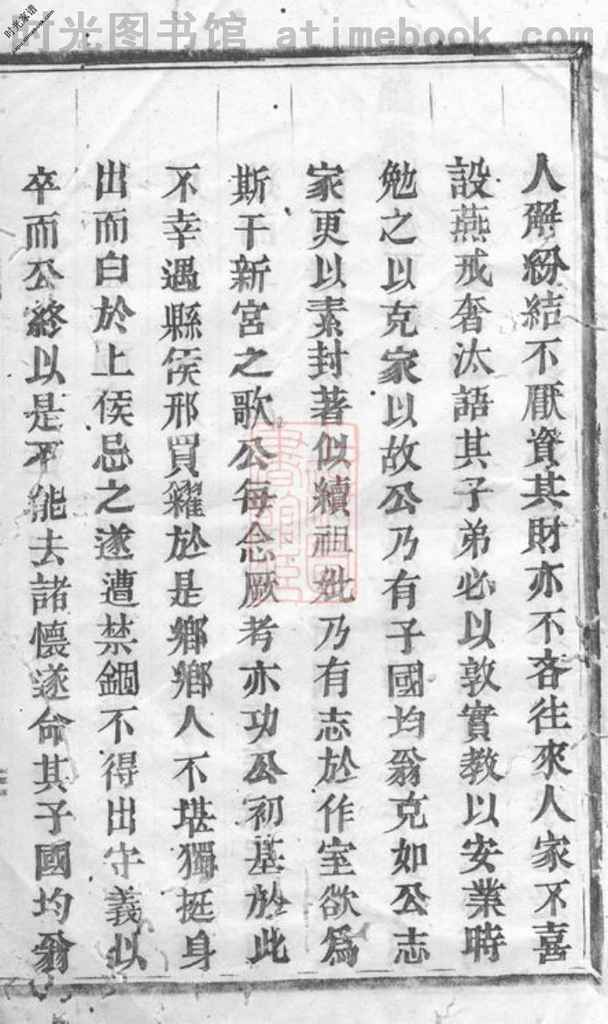 时光图书馆 atimebook.com
时光家谱
人解紛結不厭資其財亦不吝往來人家不喜
設燕戒奢汰語其子弟必以敦實教以安業時
勉之以克家以故公乃有子國均翁克如公志
家更以素封著似續祖妣乃有志於作室欲爲
斯干新宮之歌公每念厥考亦功公初基於此
不幸遇縣侯邢買糴於是鄉鄉人不堪獨挺身
出而白於上侯忌之遂遭禁錮不得出守義以
卒而公終以是不能去諸懷遂命其子國均翁